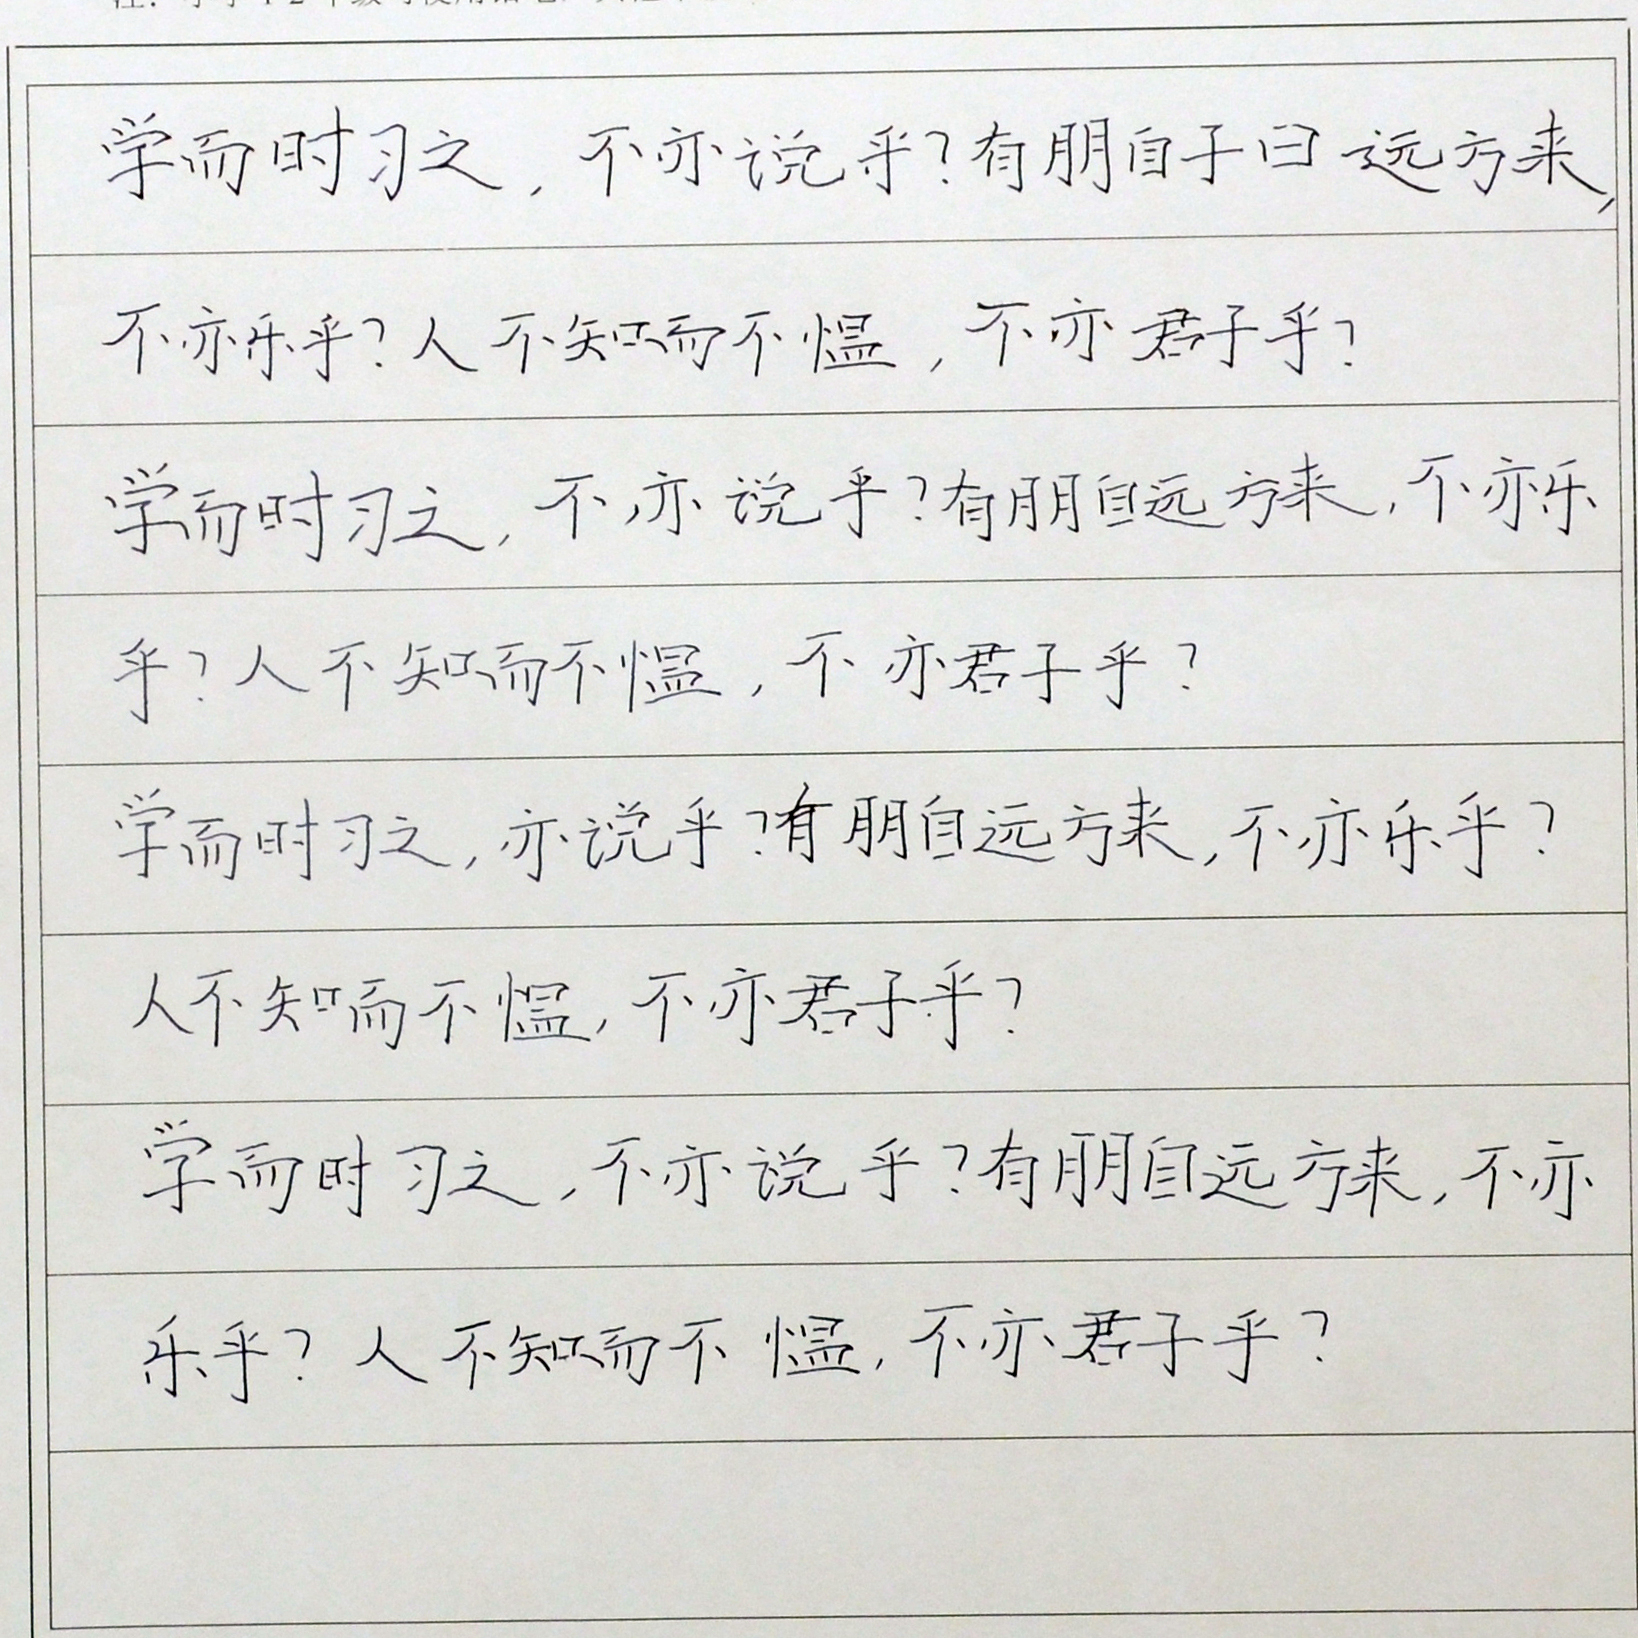 学而时习之，不亦说乎？有朋自子曰远方来，
不亦乐乎？人不知而不愠，不亦君子乎？
学而时习之，不亦说乎？有朋自远方来，不亦乐
乎？人不知而不愠，不亦君子乎？
学而时习之，亦说乎？有朋自远方来，不亦乐乎？
人不知而不愠，不亦君子乎？
学而时习之，不亦说乎？有朋自远方来，不亦
乐乎？人不知而不愠，不亦君子乎？